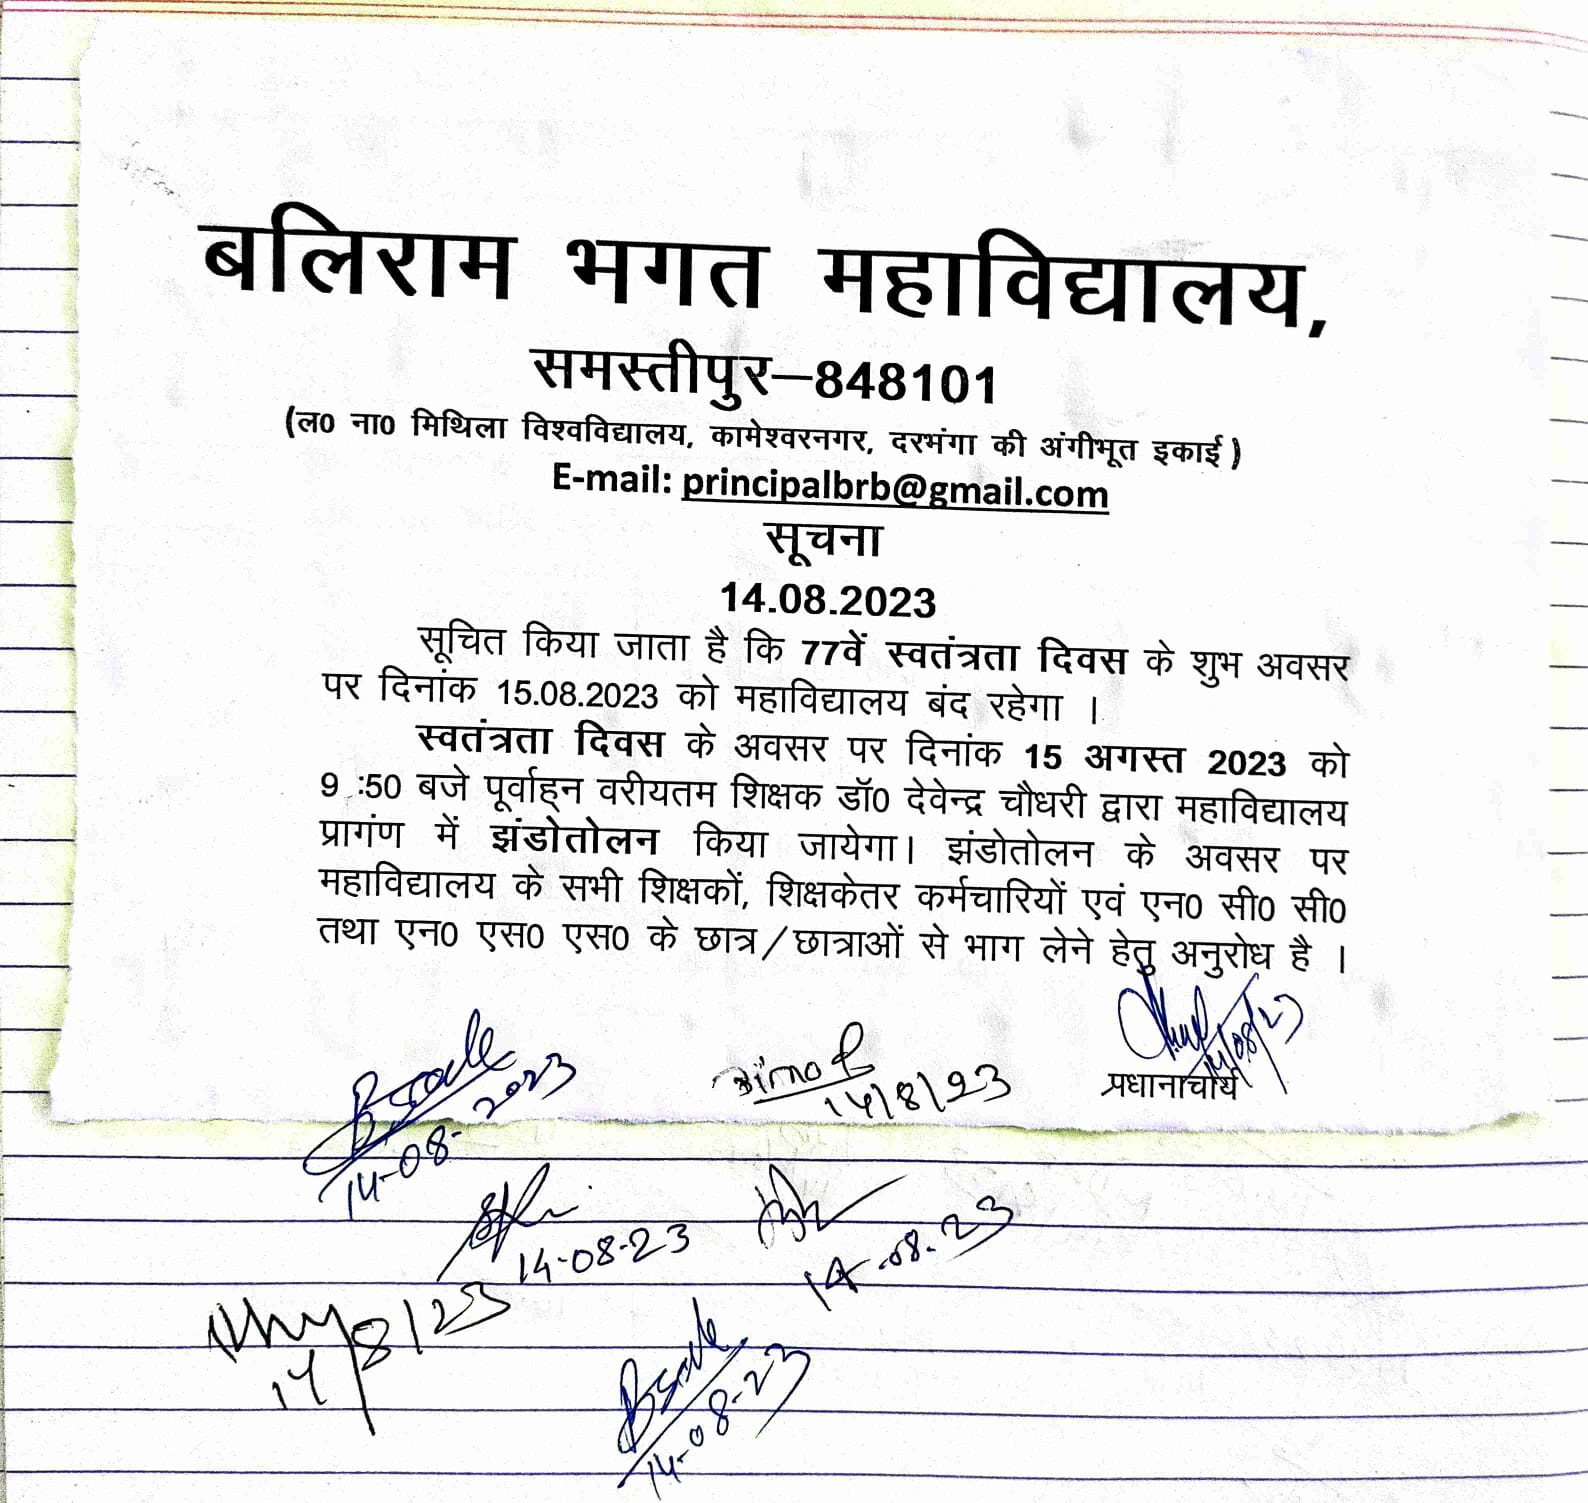 बलिराम भगत महाविद्यालय,
समस्तीपुर–848101
(ल0 ना0 मिथिला विश्वविद्यालय, कामेश्वरनगर, दरभंगा की अंगीभूत इकाई)
E-mail: principalbrb@gmail.com
सूचना
14.08.2023
सूचित किया जाता है कि 77वें स्वतंत्रता दिवस के शुभ अवसर
पर दिनांक 15.08.2023 को महाविद्यालय बंद रहेगा ।
स्वतंत्रता दिवस के अवसर पर दिनांक 15 अगस्त 2023 को
9 :50 बजे पूर्वाह्न वरीयतम शिक्षक डॉ0 देवेन्द्र चौधरी द्वारा महाविद्यालय
प्रागंण में झंडोतोलन किया जायेगा। झंडोतोलन के अवसर पर
महाविद्यालय के सभी शिक्षकों, शिक्षकेतर कर्मचारियों एवं एन0 सी0 सी0
तथा एन0 एस0 एस0 के छात्र/छात्राओं से भाग लेने हेतु अनुरोध है ।
14/08/23
प्रधानाचार्य
14-08-2023
14/8/23
14-08-23
14-08-23
14/8/23
14-08-23